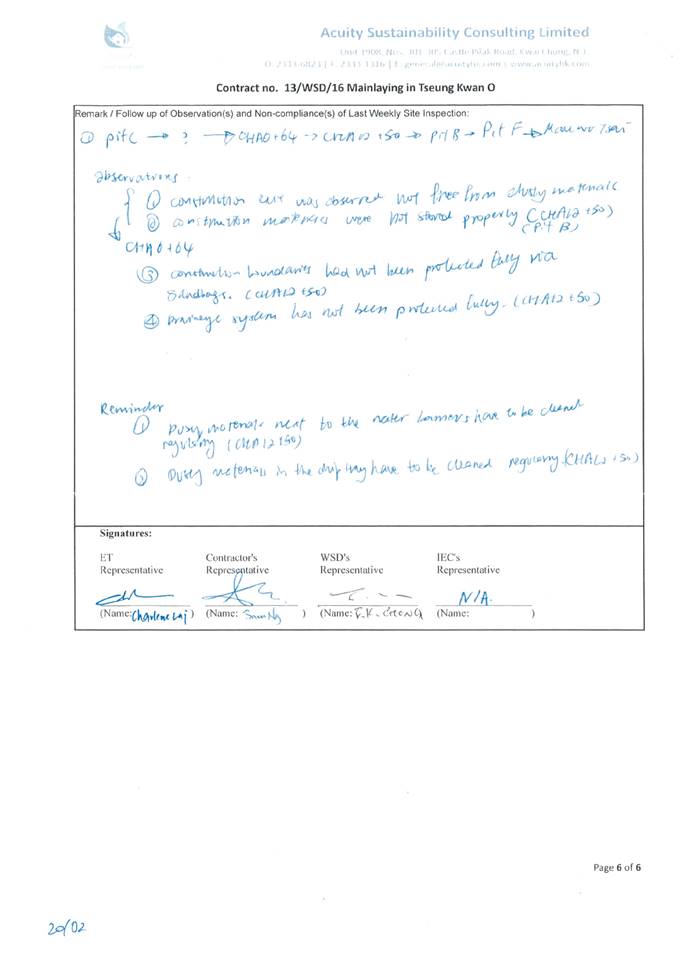 Acuity Sustainability Consulting Limited
Unit 1908, Nos. 301-305, Castle Peak Road, Kwai Chung, N.T.
O: 2333 6823 | F: 2333 1316 | E: general@acuityhk.com | www.acuityhk.com
Contract no. 13/WSD/16 Mainlaying in Tseung Kwan O
Remark / Follow up of Observation(s) and Non-compliance(s) of Last Weekly Site Inspection:
① pit C → ? → CHA0+64 → CHA12+50 → pit B → Pit F → Mau Wu Tsai
Observations.
① construction site was observed not free from dusty materials
② construction materials were not stored properly (CHA12+50)
(Pit B)
CHA0+64
③ construction boundaries had not been protected fully via
Sandbags. (CHA12+50)
④ Drainage system has not been protected fully. (CHA12+50)
Reminder
① Dusty materials next to the water barriers have to be cleaned
regularly (CHA12+50)
② Dusty materials in the drip tray have to be cleaned regularly (CHA12+50)
Signatures:
ET Contractor's WSD's IEC's
Representative Representative Representative Representative
N/A.
(Name: Charlene Lai) (Name: Sam Ng) (Name: CHONG (Name: )
Page 6 of 6
20/02